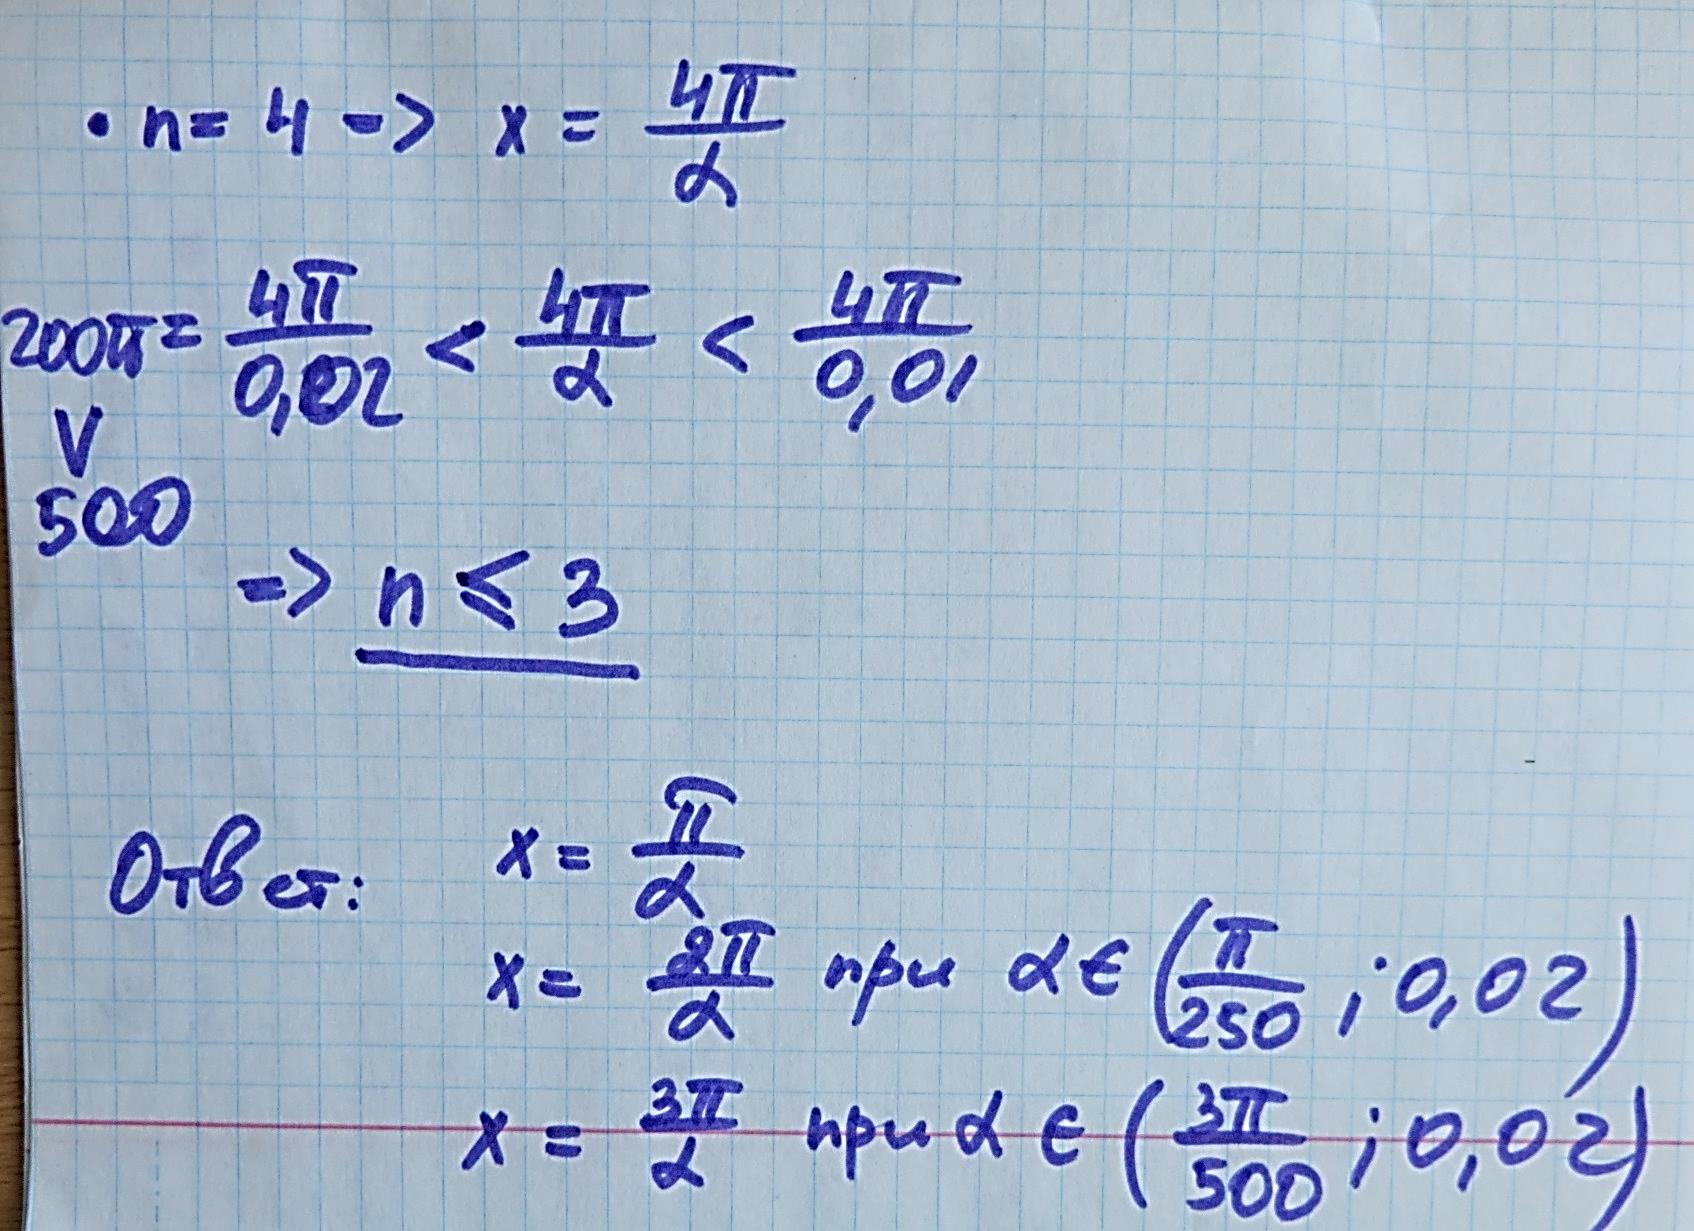 • n = 4 => x = 4π/α
200π = 4π/0,02 < 4π/α < 4π/0,01
V
500
=> n ≤ 3
Ответ: x = π/α
x = 2π/α при α ∈ (π/250 ; 0,02)
x = 3π/α при α ∈ (3π/500 ; 0,02)